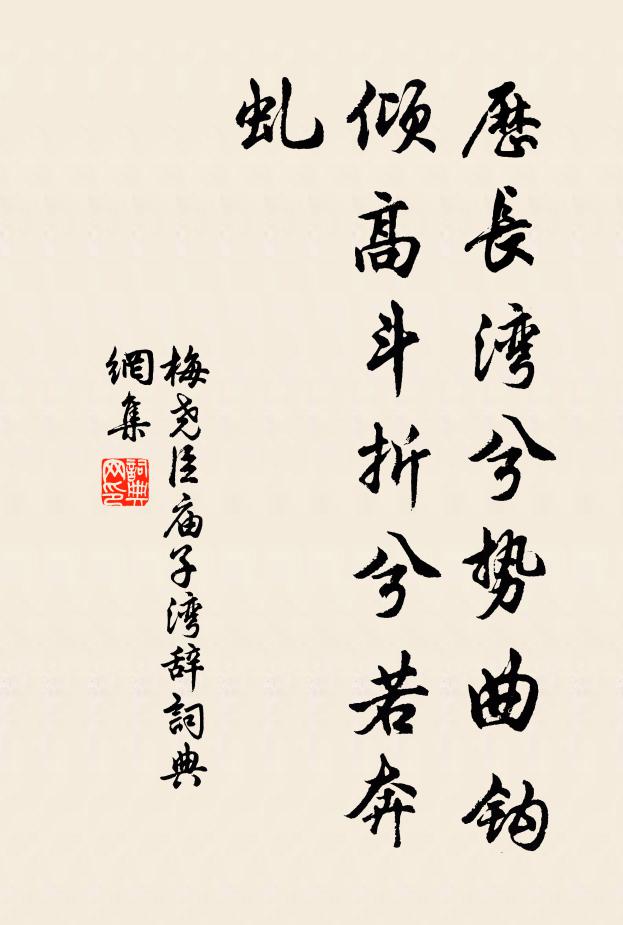 歷長湾兮势曲钩
倾高斗折兮若奔
虬
梅尧臣庙子湾辞詞典
網集
詞典
网印